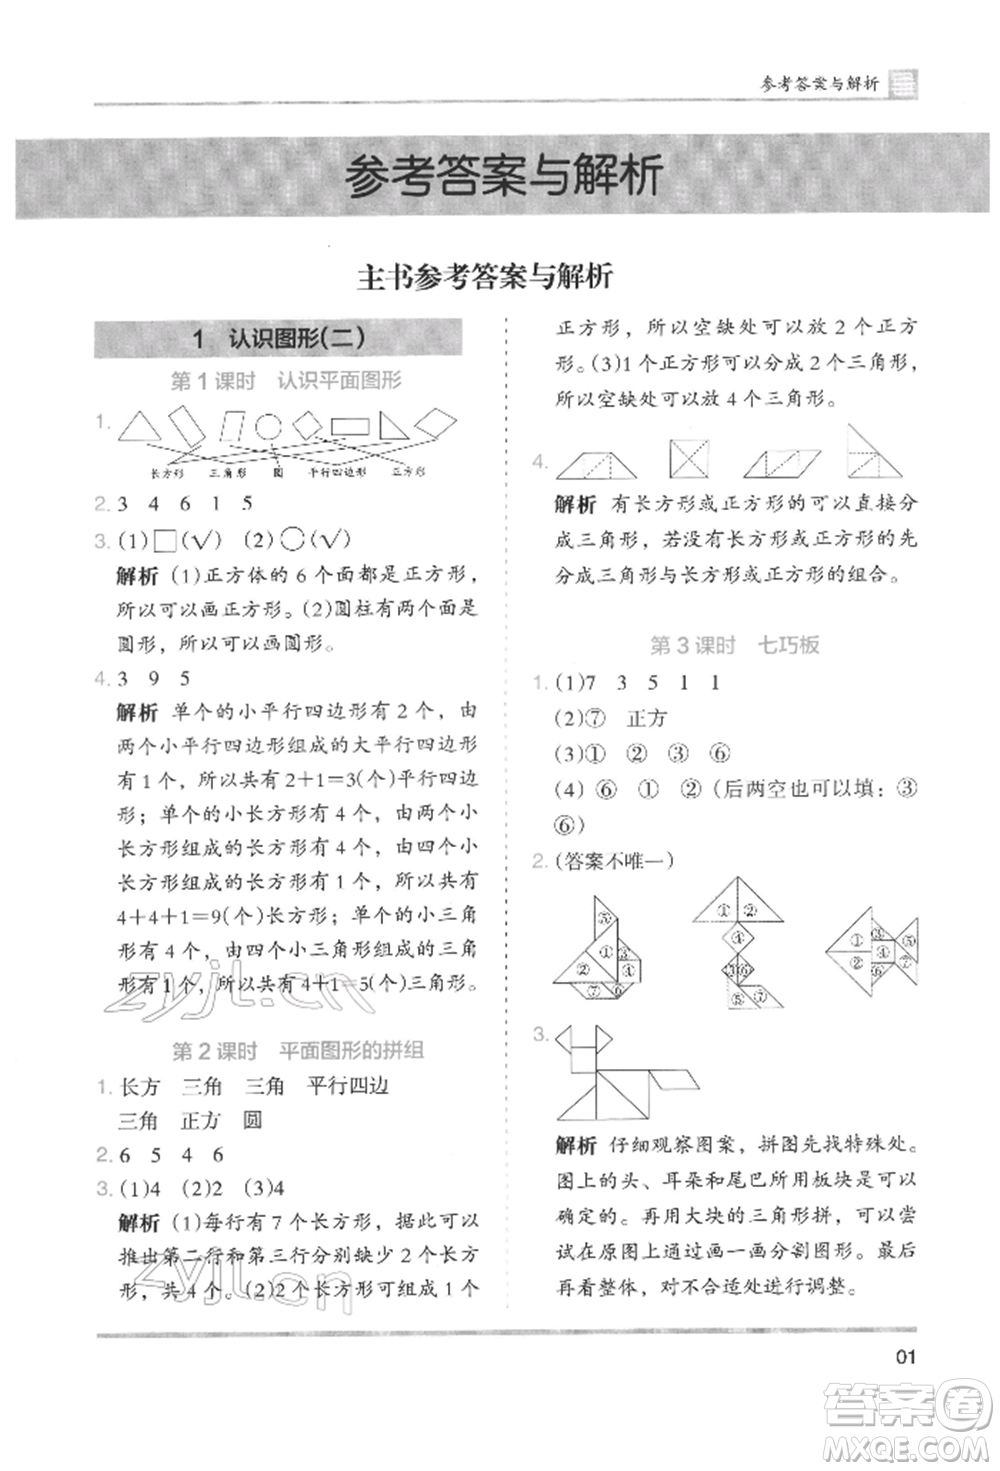 参考答案与解析
参考答案与解析
主书参考答案与解析
1 认识图形(二)
第1课时 认识平面图形
1.
长方形 三角形 圆 平行四边形 正方形
2. 3 4 6 1 5
3. (1)□(√) (2)○(√)
解析 (1)正方体的6个面都是正方形，
所以可以画正方形。(2)圆柱有两个面是
圆形，所以可以画圆形。
4. 3 9 5
解析 单个的小平行四边形有2个，由
两个小平行四边形组成的大平行四边形
有1个，所以共有2+1=3(个)平行四边
形；单个的小长方形有4个，由两个小长
方形组成的长方形有4个，由四个小长
方形组成的长方形有1个，所以共有
4+4+1=9(个)长方形；单个的小三角
形有4个，由四个小三角形组成的三角形
有1个，所以共有4+1=5(个)三角形。
第2课时 平面图形的拼组
1. 长方 三角 三角 平行四边
三角 正方 圆
2. 6 5 4 6
3. (1)4 (2)2 (3)4
解析 (1)每行有7个长方形，据此可以
推出第二行和第三行分别缺少2个长方
形，共4个。(2)2个长方形可以拼成1个
正方形，所以空缺处可以放2个正方
形。(3)1个正方形可以分成2个三角形，
所以空缺处可以放4个三角形。
4.
解析 有长方形或正方形的可以直接分
成三角形，若没有长方形或正方形的先
分成三角形与长方形或正方形的组合。
第3课时 七巧板
1. (1)7 3 5 1 1
(2)⑦ 正方
(3)① ② ③ ⑥
(4)⑥ ① ②(后两空也可以填：③
⑥)
2. (答案不唯一)
⑤ ① ③ ② ④ ⑥ ⑦
① ② ④ ③ ⑥ ⑤ ⑦
① ③ ⑤ ④ ② ⑥ ⑦
3.
解析 仔细观察图案，拼图先找特殊处。
图上的头、耳朵和尾巴所用板块是可以
确定的。再用大块的三角形拼，可以尝
试在原图上画一画分割图形。最后
再看整体，对不合适处进行调整。
01
zyjl.cn
zyjl.cn
答案卷
MXQE.COM